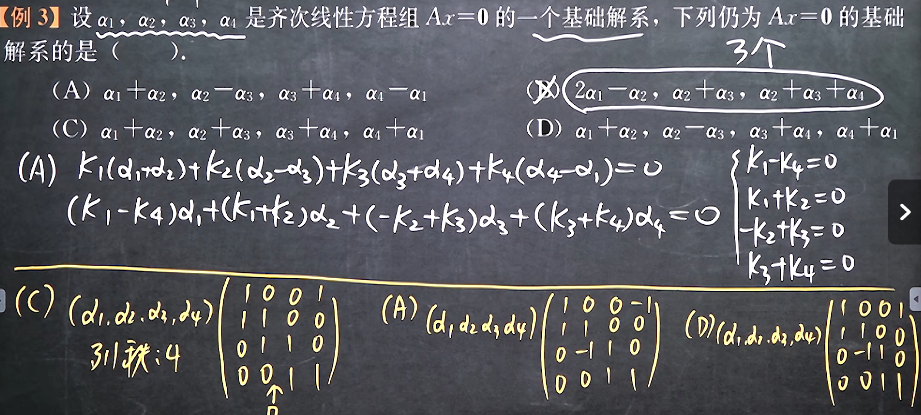 【例3】设 α₁，α₂，α₃，α₄ 是齐次线性方程组 Ax=0 的一个基础解系，下列仍为 Ax=0 的基础
解系的是（　　）.
3个
(A) α₁+α₂，α₂-α₃，α₃+α₄，α₄-α₁ (B) 2α₁-α₂，α₂+α₃，α₂+α₃+α₄
(C) α₁+α₂，α₂+α₃，α₃+α₄，α₄+α₁ (D) α₁+α₂，α₂-α₃，α₃+α₄，α₄+α₁
(A) K₁(α₁+α₂)+K₂(α₂-α₃)+K₃(α₃+α₄)+K₄(α₄-α₁)=0
(K₁-K₄)α₁+(K₁+K₂)α₂+(-K₂+K₃)α₃+(K₃+K₄)α₄=0
K₁-K₄=0
K₁+K₂=0
-K₂+K₃=0
K₃+K₄=0
(C) (α₁.α₂.α₃,α₄)
1 0 0 1
1 1 0 0
0 1 1 0
0 0 1 1
列秩:4
(A) (α₁ α₂ α₃ α₄)
1 0 0 -1
1 1 0 0
0 -1 1 0
0 0 1 1
(D) (α₁.α₂.α₃,α₄)
1 0 0 1
1 1 0 0
0 -1 1 0
0 0 1 1